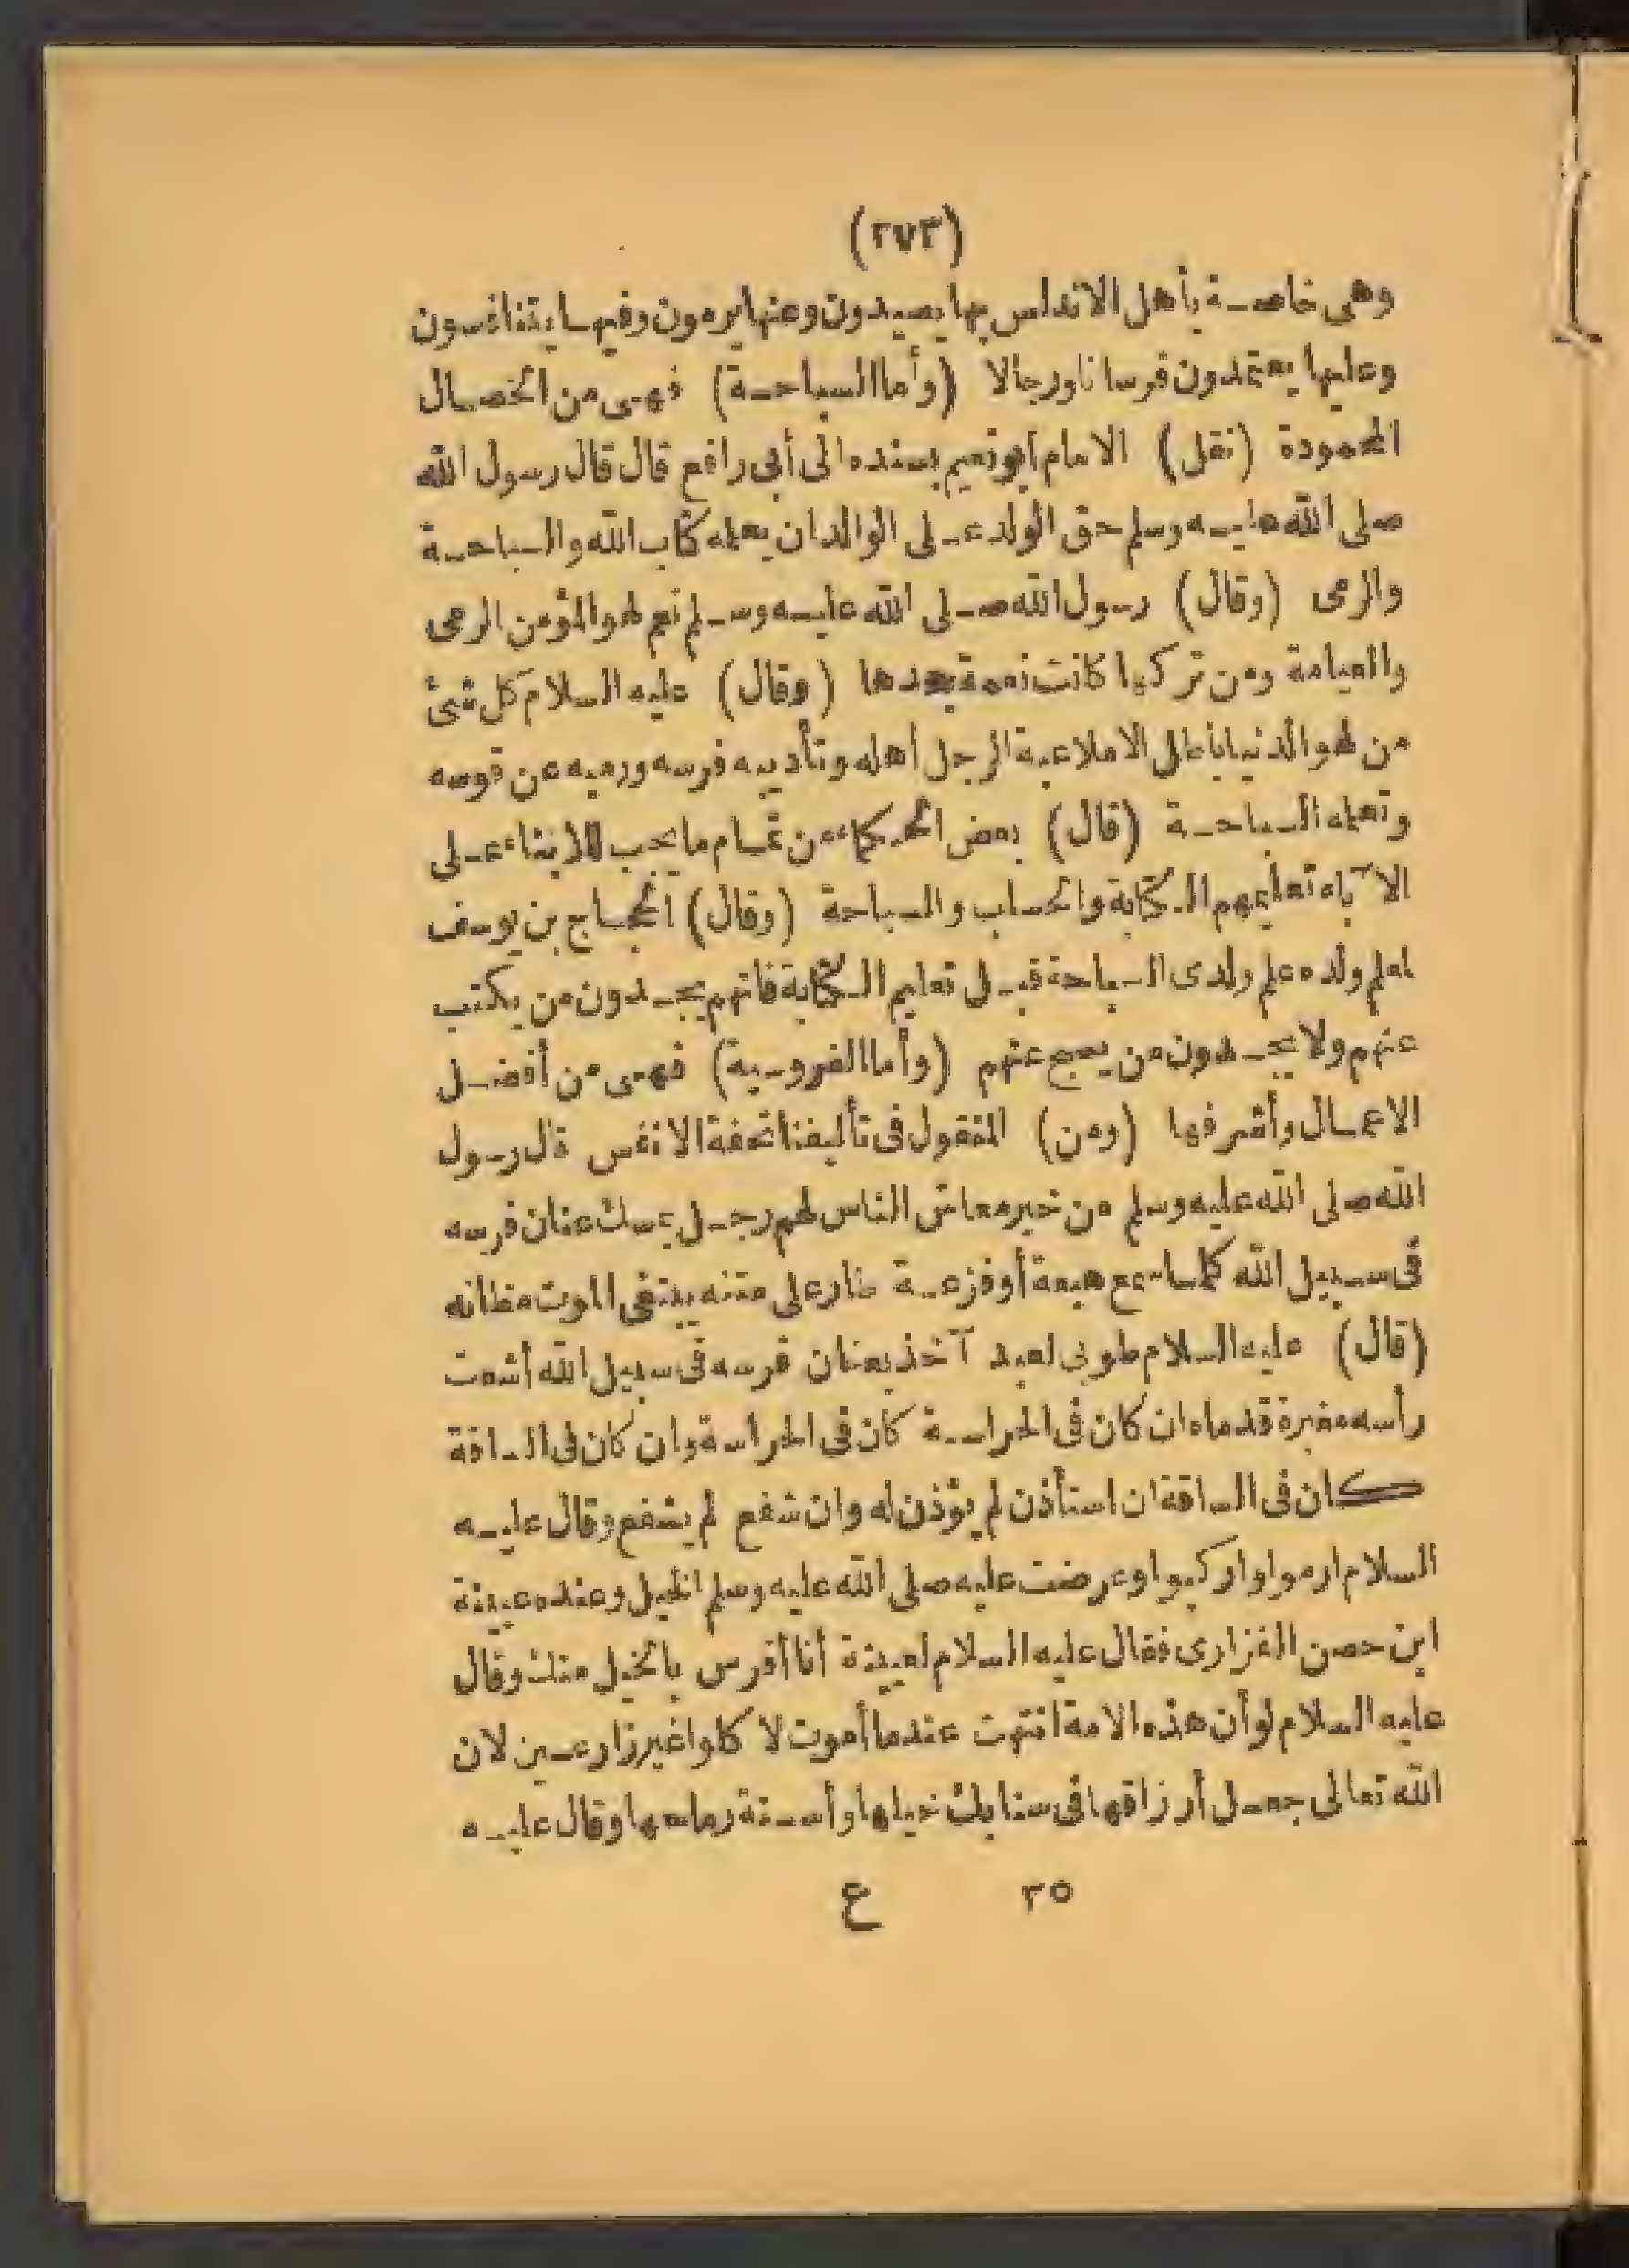 (٢٧٣)
وهى خاصة بأهل الاندلس بها يصيدون وعنها يرمون وفيها يتنافسون
وعليها يعتمدون فرسانا ورجالا (وأما السباحة) فهى من الخصال
المحمودة (نقل) الامام أبو نعيم بسنده الى أبى رافع قال قال رسول الله
صلى الله عليه وسلم حق الولد على الوالد ان يعلمه كتاب الله والسباحة
والرمى (وقال) رسول الله صلى الله عليه وسلم نعم لهو المؤمن الرمى
ومن تركها كانت نعمة (وقال) عليه السلام كل شئ
من لهو الدنيا باطل الا ملاعبة الرجل أهله وتأديبه فرسه ورميه عن قوسه
وتعلمه السباحة (قال) بعض الحكماء من تمام ما يجب للابناء على
الآباء تعليمهم الكتابة والحساب والسباحة (وقال) الحجاج بن يوسف
لمعلم ولده علم ولدى السباحة قبل تعليم الكتابة فانهم يجدون من يكتب
عنهم ولا يجدون من يسبح عنهم (وأما الفروسية) فهى من أفضل
الاعمال وأشرفها (ومن) المنقول فى تأليفنا تحفة الانفس قال رسول
الله صلى الله عليه وسلم من خير معاش الناس لهم رجل يمسك عنان فرسه
فى سبيل الله كلما سمع هيعة أو فزعة طار على متنه يبتغى الموت مظانه
(قال) عليه السلام طوبى لعبد آخذ بعنان فرسه فى سبيل الله أشعت
رأسه مغبرة قدماه ان كان فى الحراسة كان فى الحراسة وان كان فى الساقة
كان فى الساقة ان استأذن لم يؤذن له وان شفع لم يشفع وقال عليه
السلام ارموا واركبوا وعرضت عليه صلى الله عليه وسلم الخيل وعنده عيينة
ابن حصن الفزارى فقال عليه السلام لعيينة أنا أفرس بالخيل منك وقال
عليه السلام لو أن هذه الامة انتهت عندما أموت لا كلوا غير زارعين لان
الله تعالى جعل أرزاقها فى سنابك خيلها وأسنة رماحها وقال عليه
٣٥ ع